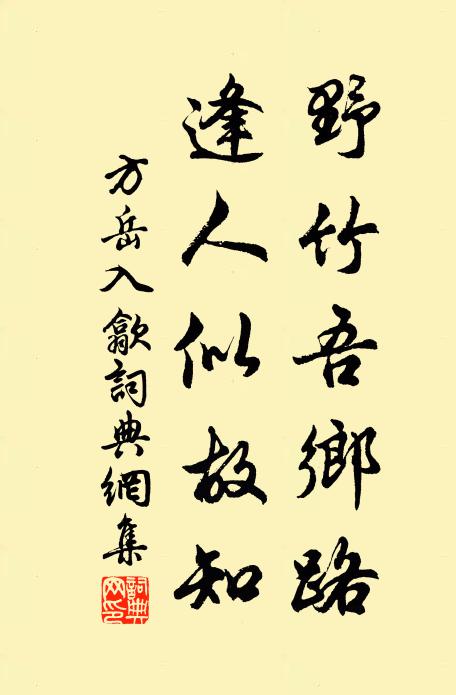 野竹吾鄉路
逢人似故知
方岳入歙詞典網集
詞典网印